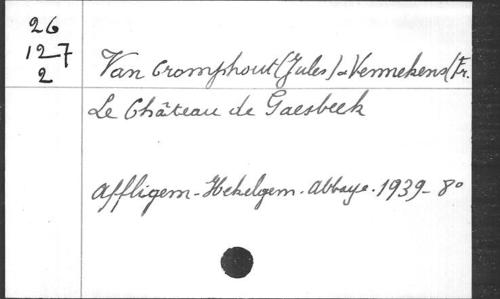 26
127
2
Van Cromphout (Jules) & Vennekens (Fr.
Le Château de Gaesbeek
Affligem - Hekelgem - Abbaye. 1939 - 8°